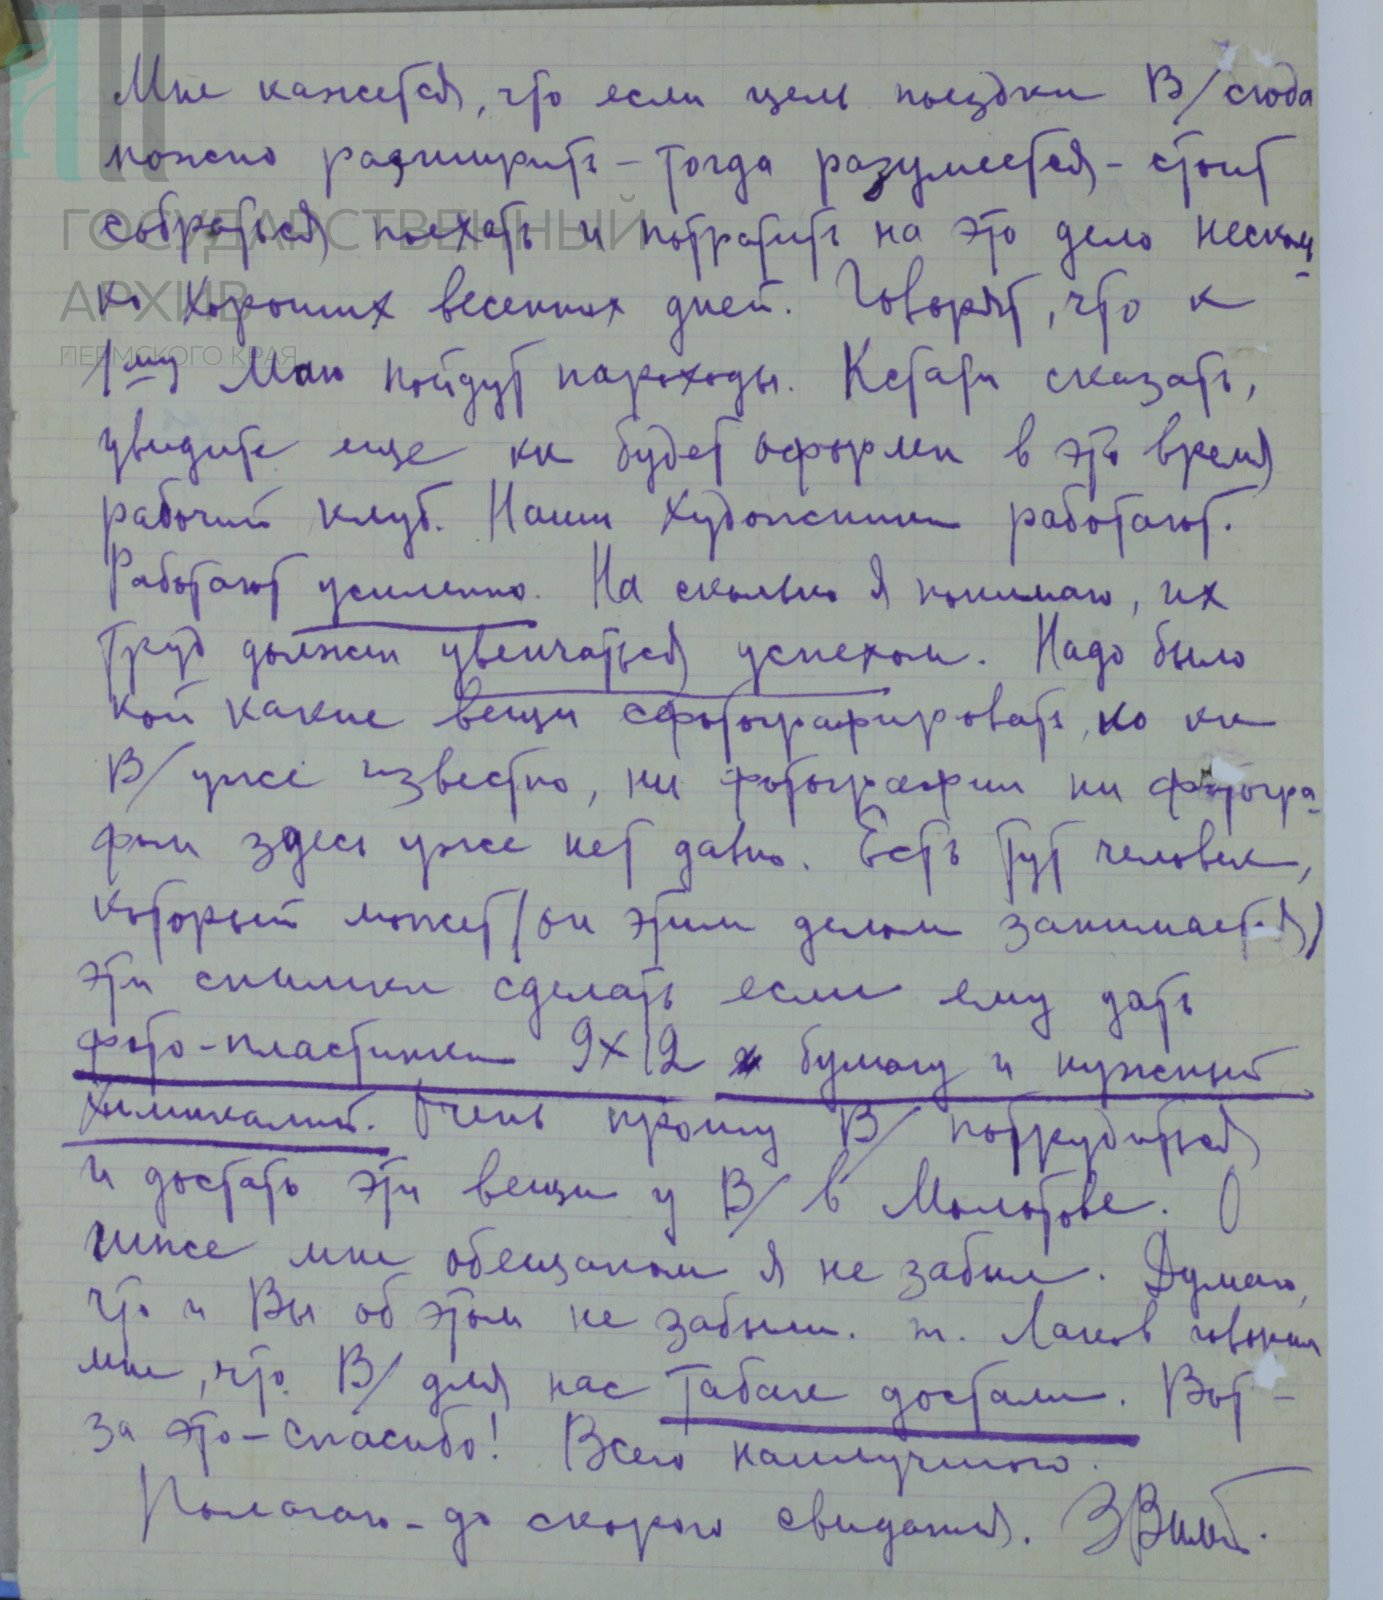 ГОСУДАРСТВЕННЫЙ
АРХИВ
ПЕРМСКОГО КРАЯ
Мне кажется, что если цель поездки В/ сюда
можно расширить – тогда разумеется – стоит
собраться поехать и потратить на это дело несколь-
ко хороших весенних дней. Говорят, что к
1му Мая пойдут пароходы. Кстати сказать,
увидите еще как будет оформлен в это время
рабочий клуб. Наши художники работают.
Работают усиленно. На сколько я понимаю, их
труд должен увенчаться успехом. Надо было
кой какие вещи сфотографировать, но как
В/ уже известно, ни фотографии ни фотогра-
фии здесь уже нет давно. Есть тут человек,
который может (он этим делом занимается)
эти снимки сделать если ему дать
фото-пластинки 9х12 бумагу и нужный
химикалий. Очень прошу В/ потрудиться
и достать эти вещи у В/ в Молотове. О
мне обещаном я не забыл. Думаю,
что и Вы об этом не забыли. т. говорил
мне, что В/ для нас табак достали. Вот –
за это – спасибо! Всего наилучшего.
Полагаю – до скорого свидания.